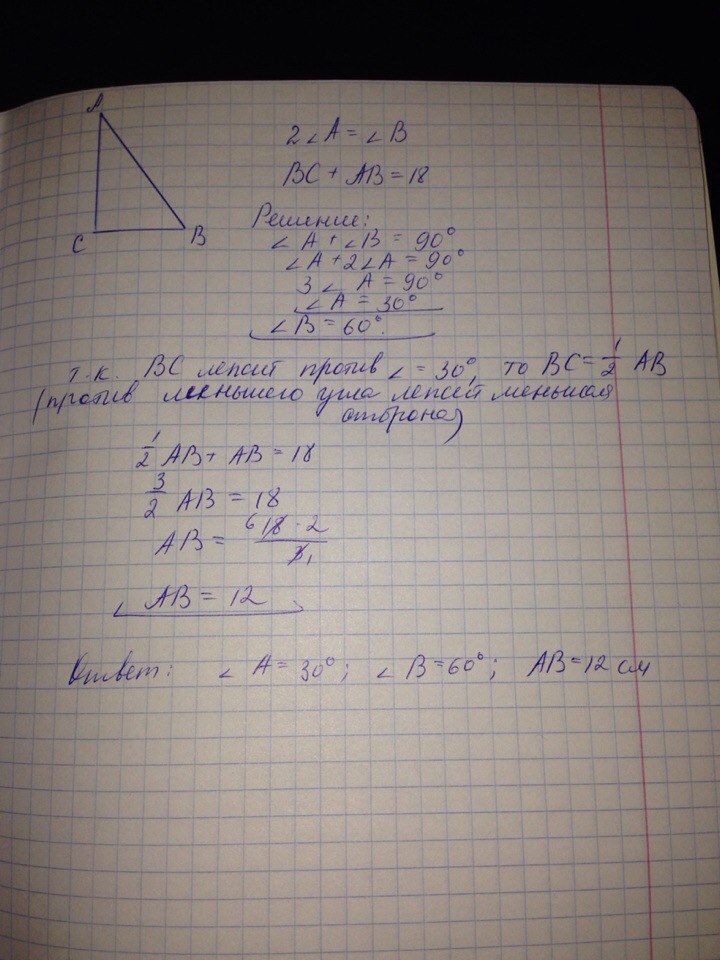 A
C
B
2∠A = ∠B
BC + AB = 18
Решение:
∠A + ∠B = 90°
∠A + 2∠A = 90°
3∠A = 90°
∠A = 30°
∠B = 60°.
т.к. BC лежит против ∠ = 30°, то BC = 1/2 AB
(против меньшего угла лежит меньшая
сторона)
1/2 AB + AB = 18
3/2 AB = 18
AB = 6 18 · 2 / 3 1
AB = 12
Ответ: ∠A = 30°; ∠B = 60°; AB = 12 см